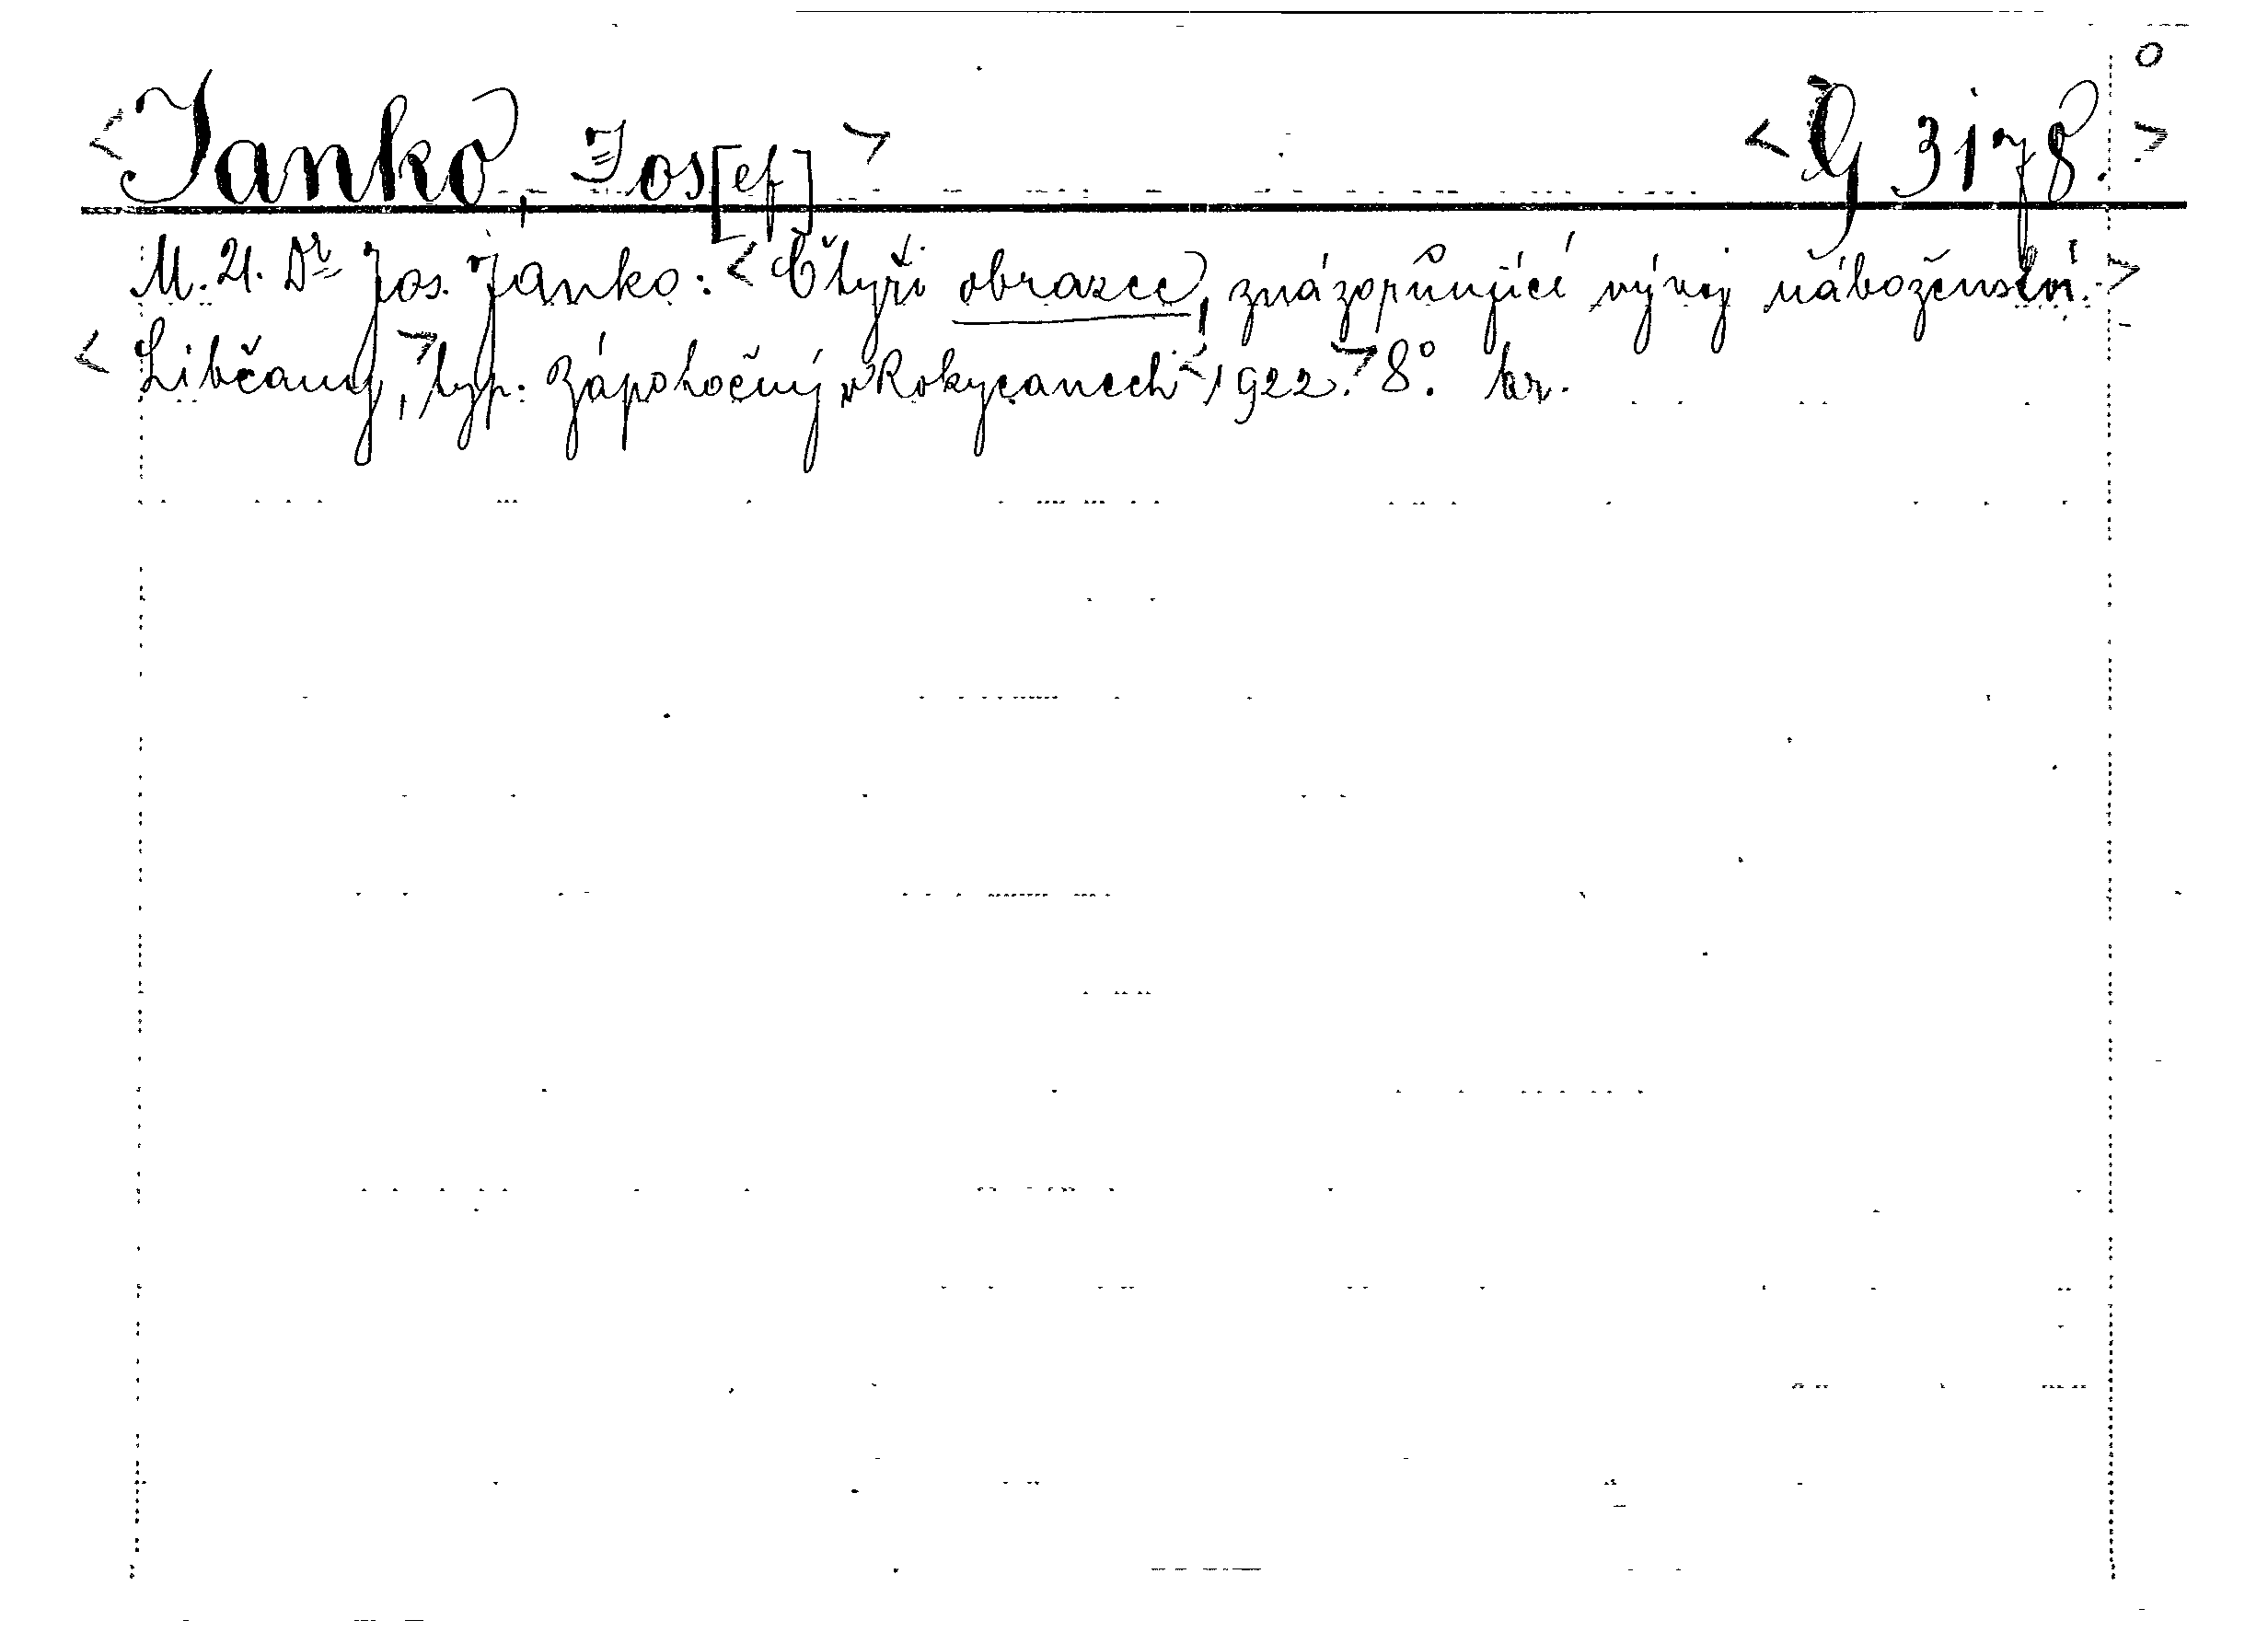 <Janko, Jos[ef]> <G 3178.> o
M. 21. Dr Jos. Janko: <Čtyři obrazce, znázorňující vývoj náboženství.>
<Libčany,> typ. Zápotočný v Rokycanech <1922.> 8°. br.